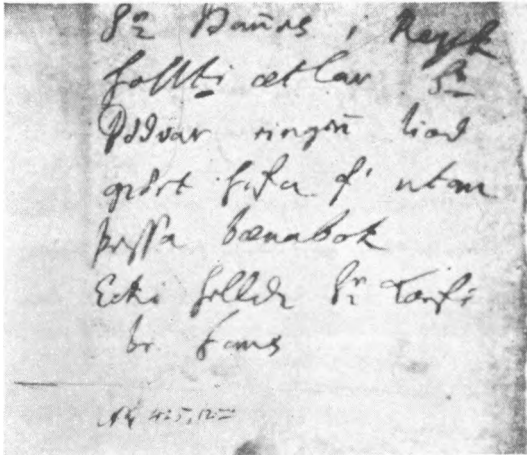 Sr Hannes i Reyk
hollti ætlar Sr
Bödvar eingin liod
giört hafa f' utan
þessa bænabok
Ecki helldr Sr Torfi
br. hans
AM 425, 12mo